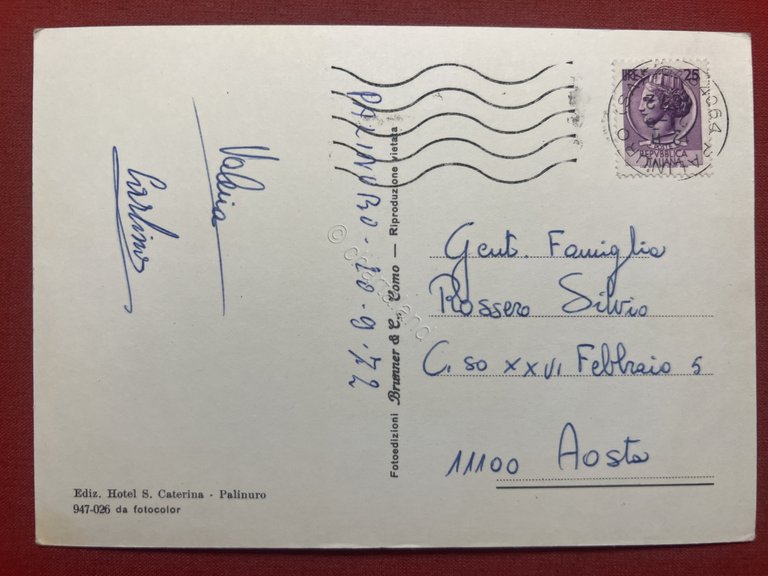 Valeria
Carlino
PALINURO - 20 - 9 - 72
Fotoedizioni Brunner & C., Como — Riproduzione vietata
LIRE 25
REPVBBLICA
ITALIANA
Gent. Famiglia
Rossero Silvio
C.so XXVI Febbraio 5
11100 Aosta
Ediz. Hotel S. Caterina - Palinuro
947-026 da fotocolor